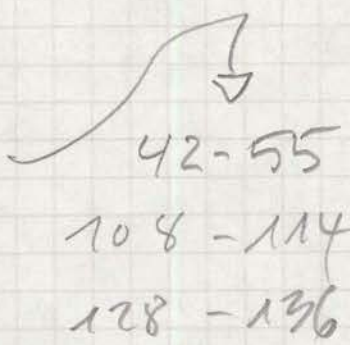 42-55
108-114
128-136